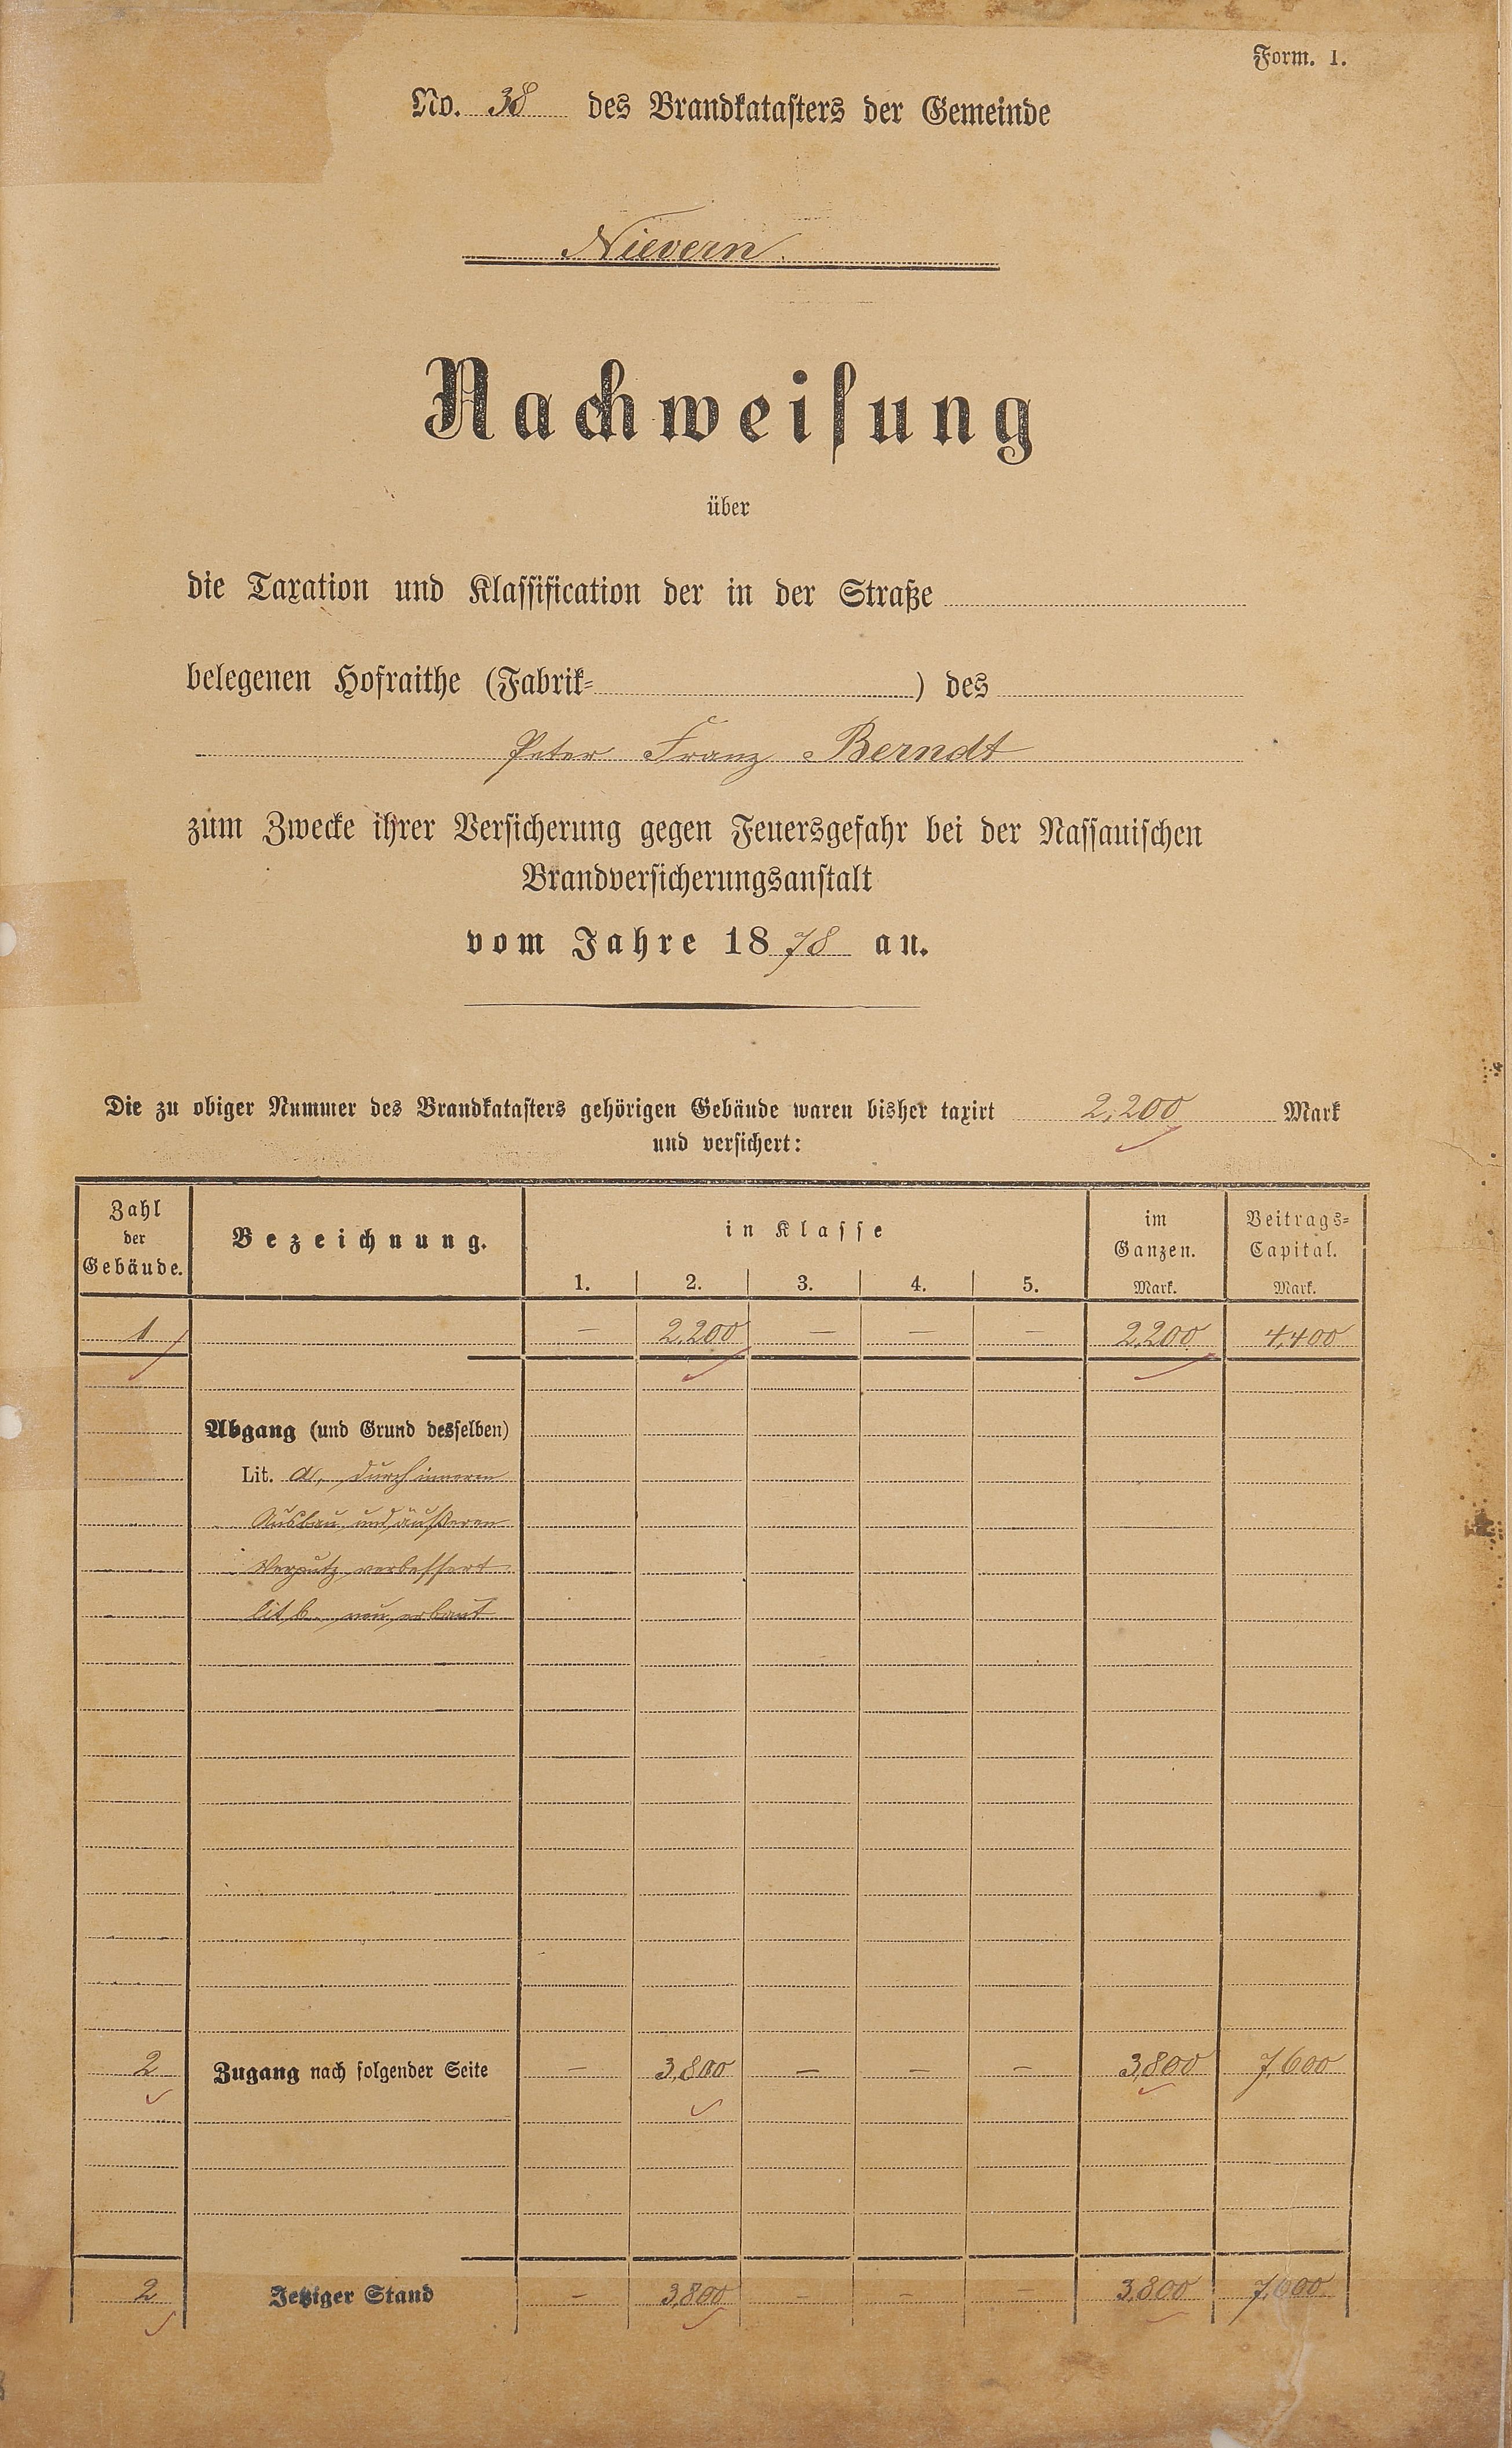 Form. 1.
No. 38 des Brandkatasters der Gemeinde
Nievern.
Nachweisung
über
die Taxation und Klassification der in der Straße
belegenen Hofraithe (Fabrik- ) des
Peter Franz Berndt
zum Zwecke ihrer Versicherung gegen Feuersgefahr bei der Nassauischen
Brandversicherungsanstalt
vom Jahre 1878 an.
Die zu obiger Nummer des Brandkatasters gehörigen Gebäude waren bisher taxirt 2,200 Mark
und versichert:
Zahl der Gebäude. Bezeichnung. in Klasse im Ganzen. Beitrags-Capital.
1. 2. 3. 4. 5. Mark. Mark.
1 — 2,200 — — — 2,200 4,400
Abgang (und Grund desselben)
Lit. a, durch inneren
Ausbau und äußeren
Verputz verbessert
lit b. neu erbaut
2 Zugang nach folgender Seite — 3,800 — — — 3,800 7,600
2 Jetziger Stand — 3,800 — — — 3,800 7,600